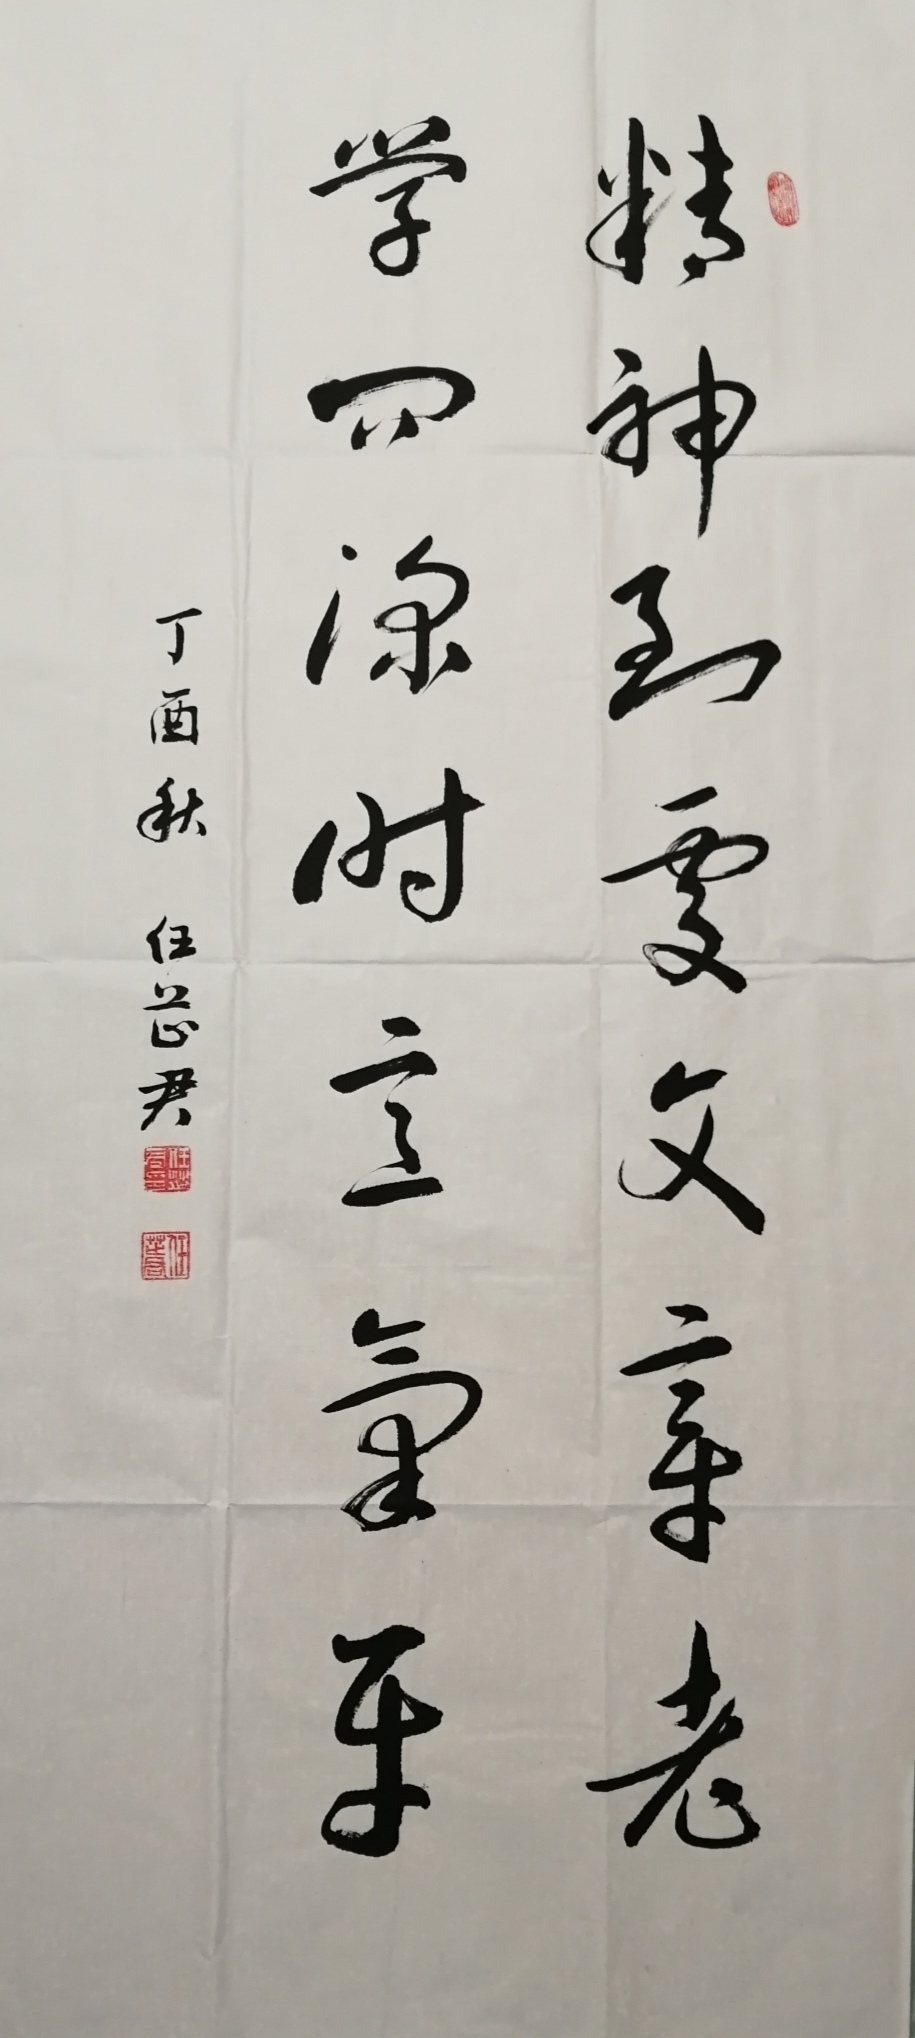 精神到處文章老
学问深时意氣平
丁酉秋 任芷君